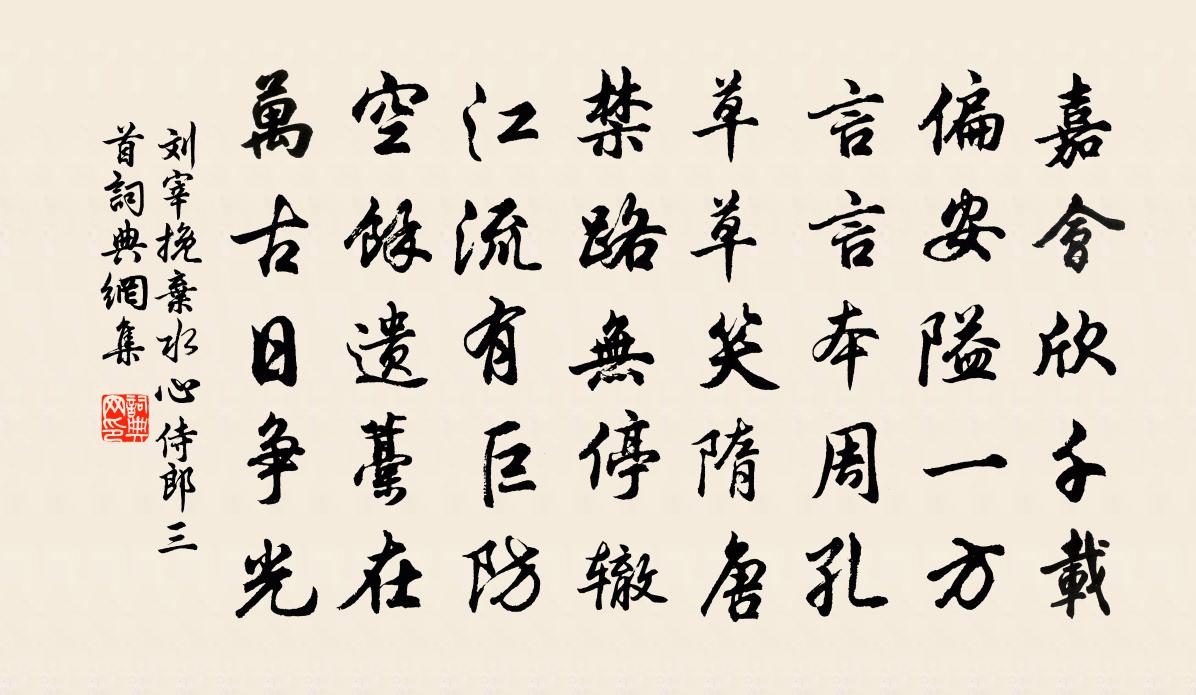 嘉會欣千載
偏安隘一方
言言本周孔
草草笑隋唐
禁路無停辙
江流有巨防
空餘遗藁在
萬古日争光
刘宰挽棄水心侍郎三
首詞典網集
詞典
网印